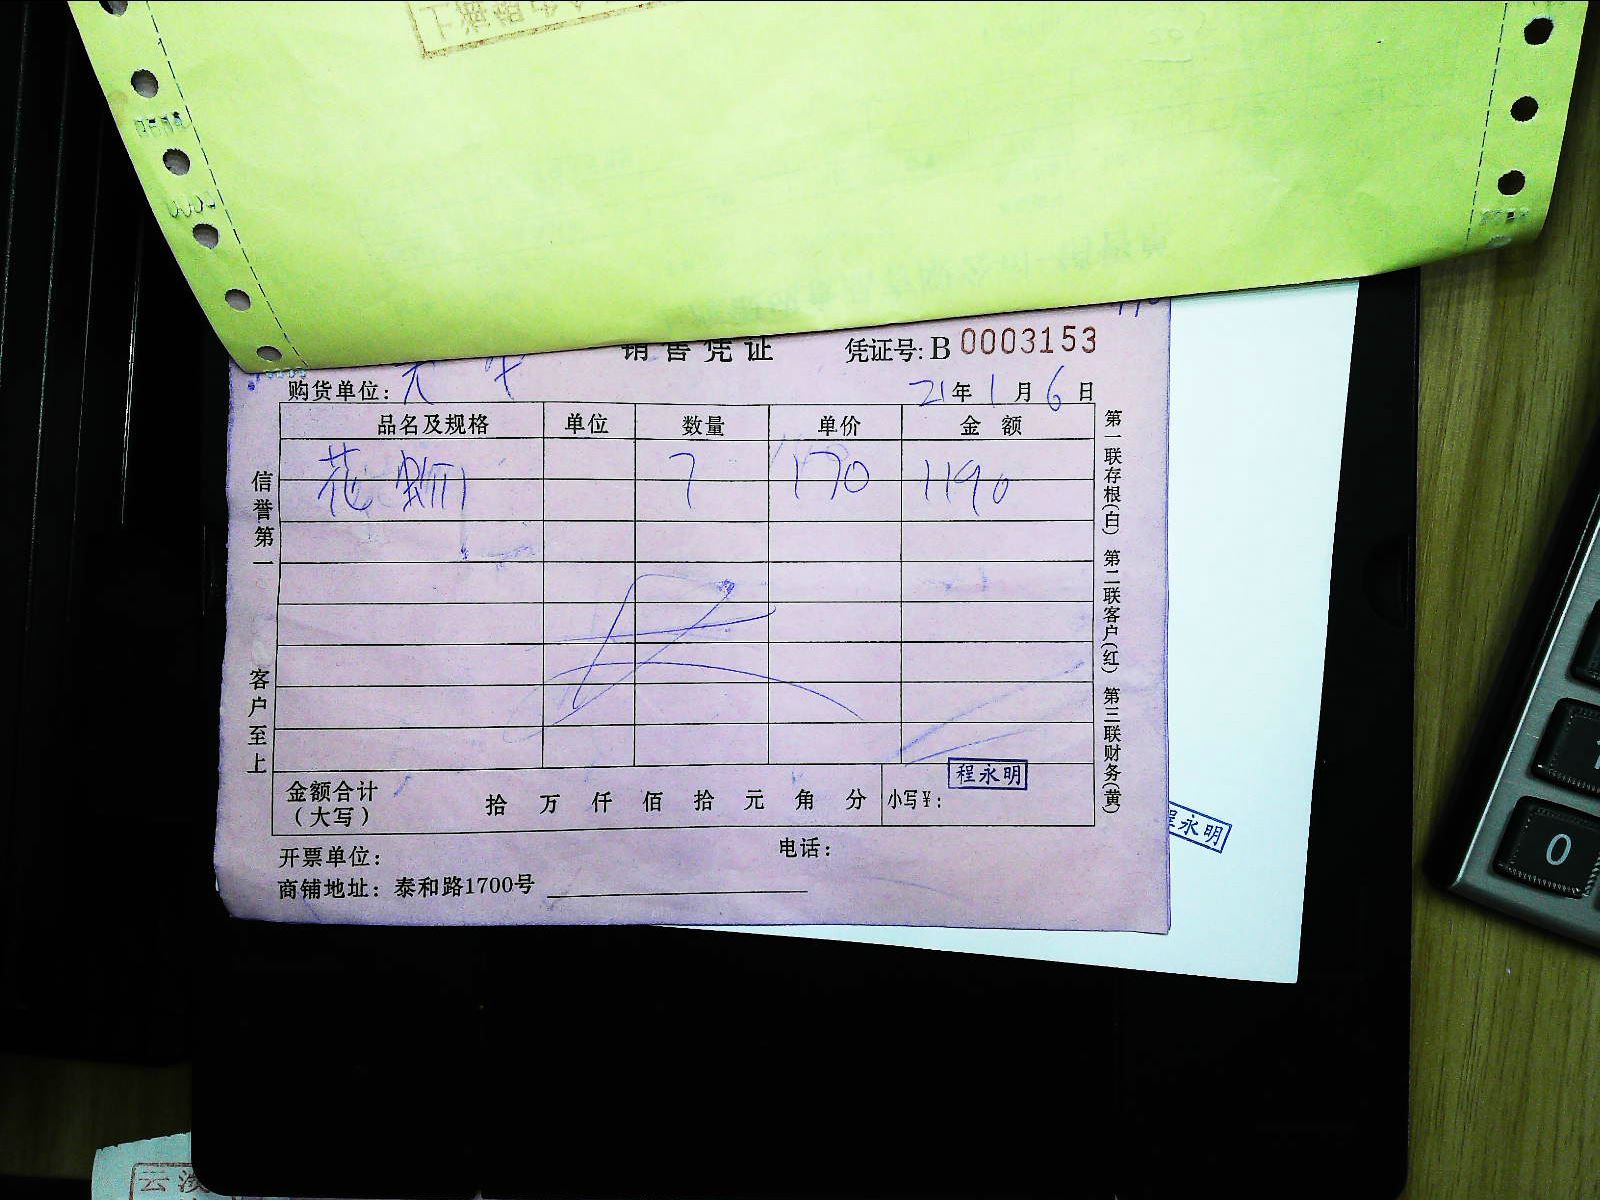 销售凭证
凭证号: B 0003153
购货单位:
21年1月6日
品名及规格 单位 数量 单价 金额
花 7 170 1190
信誉第一 客户至上
第一联存根(白) 第二联客户(红) 第三联财务(黄)
金额合计
(大写)
拾 万 仟 佰 拾 元 角 分
小写¥:
程永明
程永明
开票单位:
电话:
商铺地址: 泰和路1700号
0